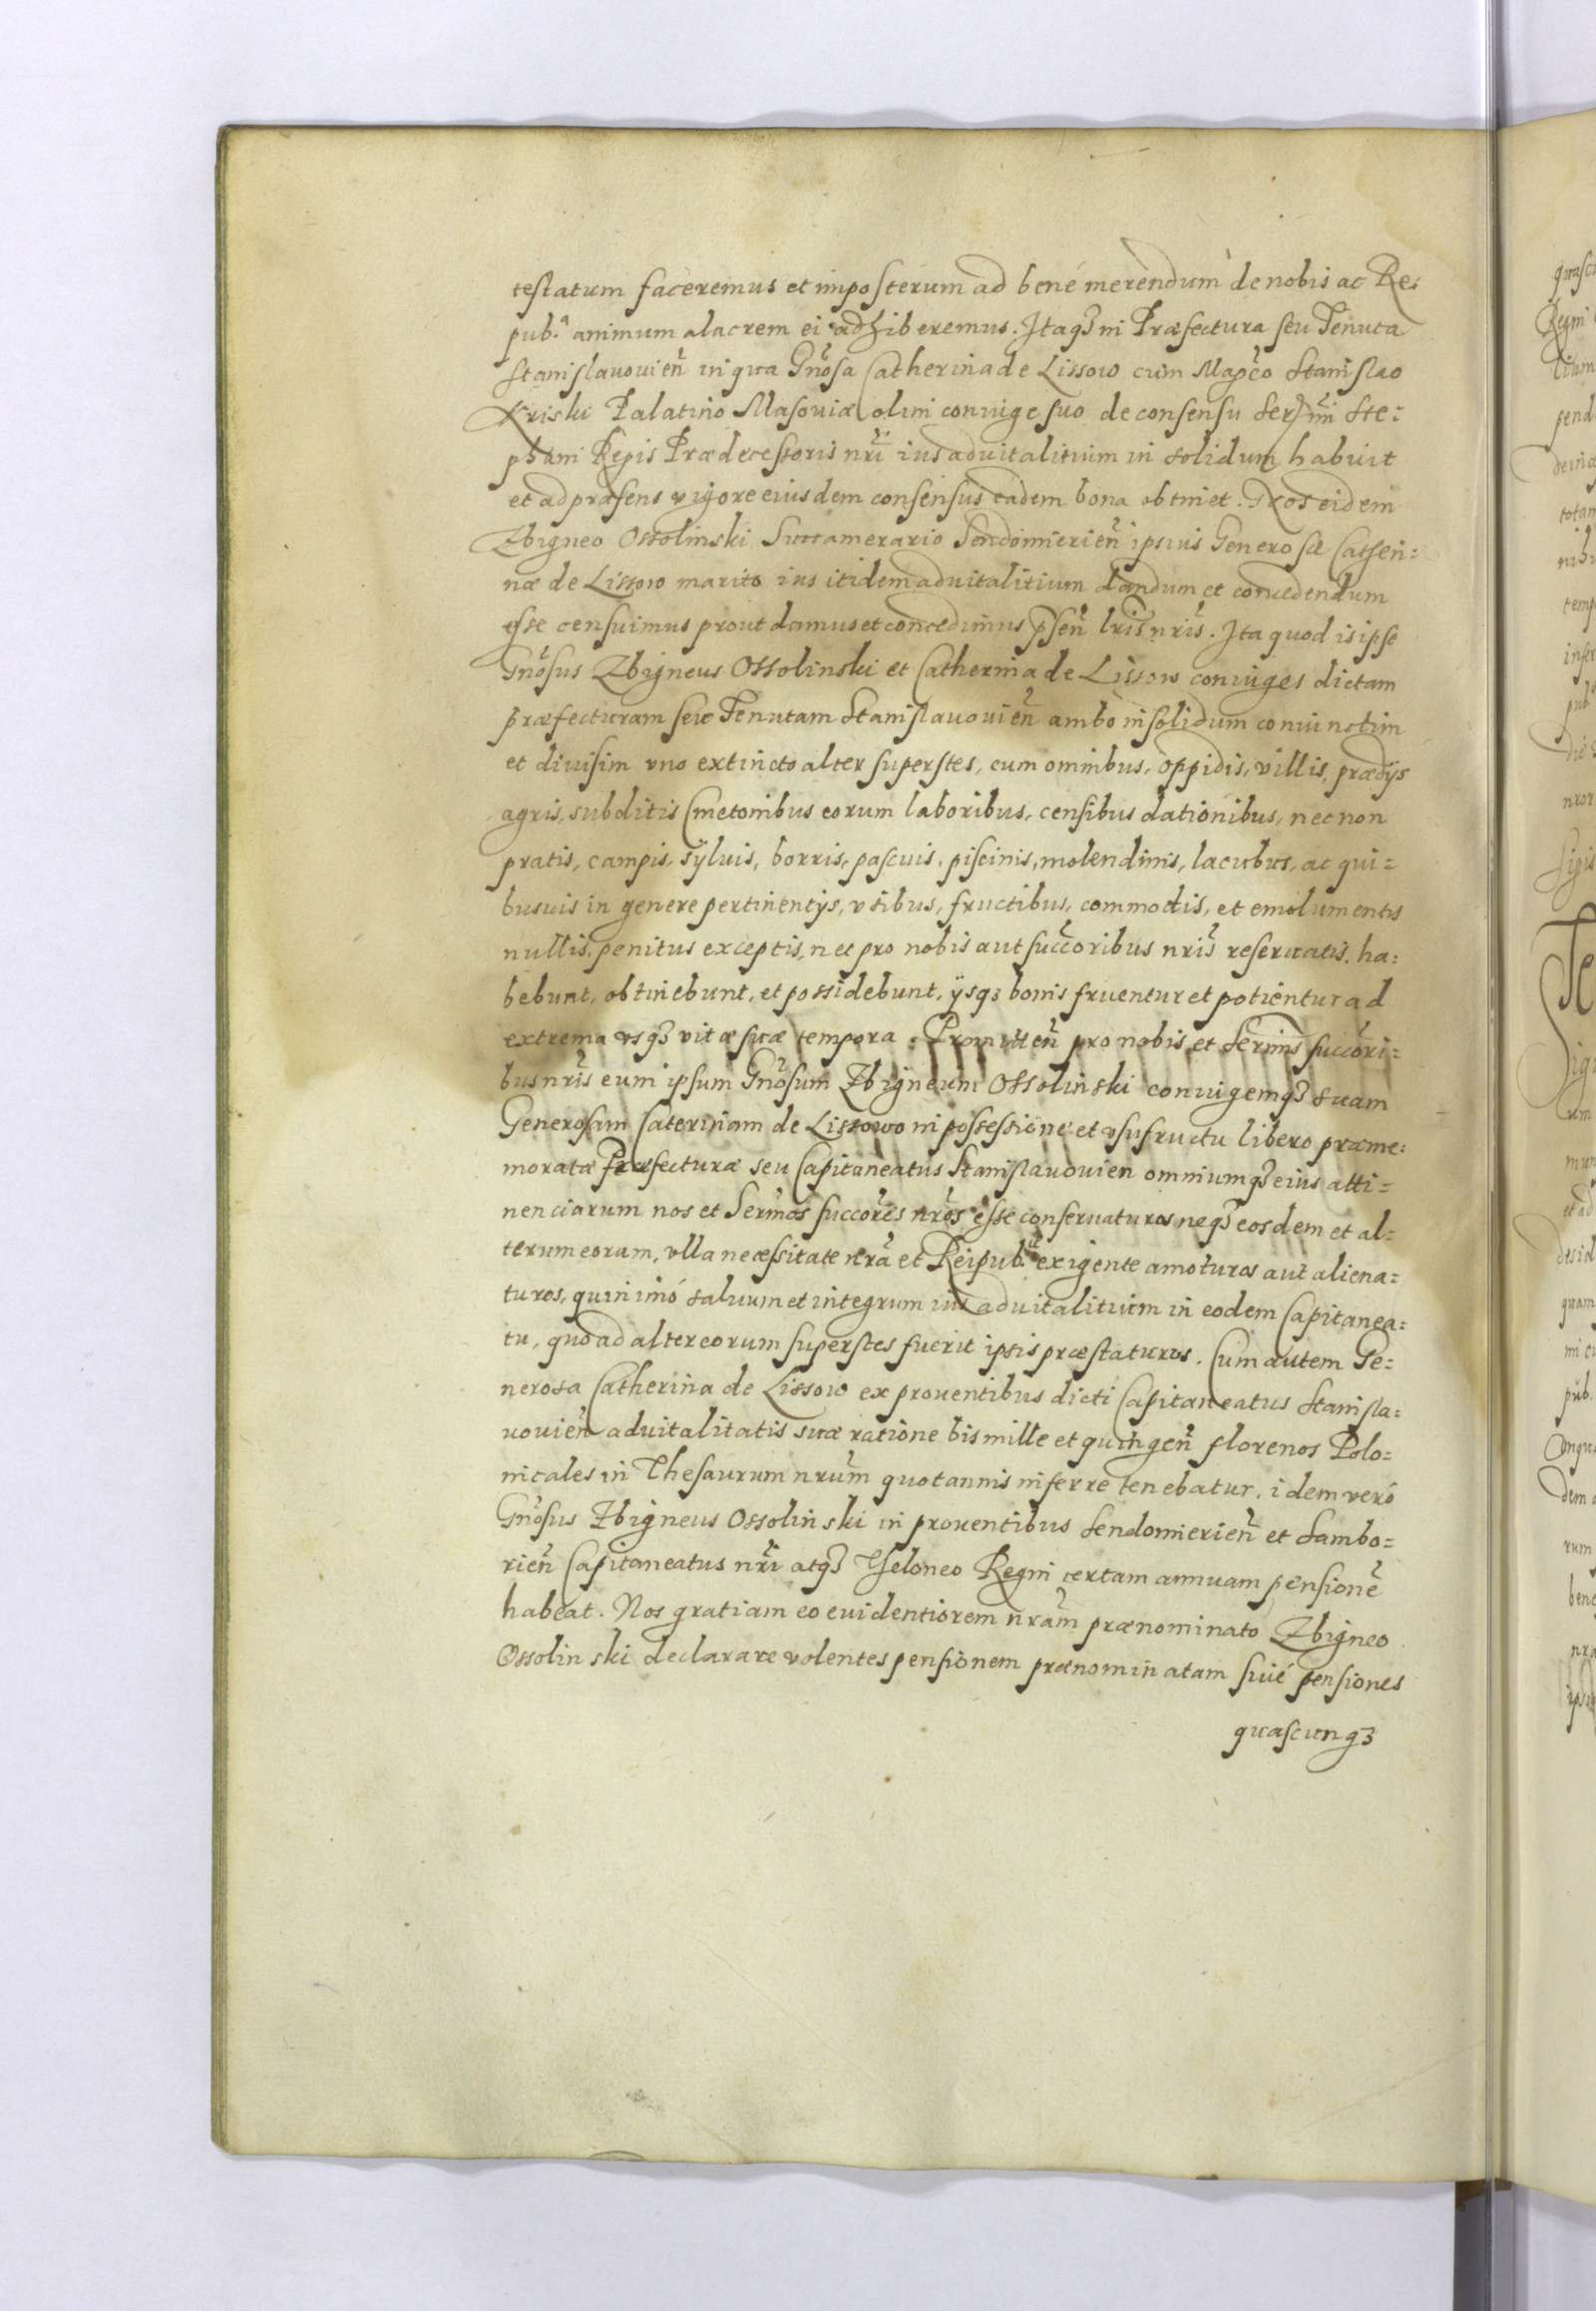 testatum faceremus et imposterum ad bene merendum de nobis ac Re=
pub.ᵃ animum alacrem ei adhiberemus. Itaq3 in Præfectura seu Tenuta
Stanislauouien̄ in qua Gn̄osa Catherina de Lissow cum Mag̃co Stanislao
Kriski Palatino Masouiæ olim coniuge suo de consensu Ser̃mi Ste=
phani Regis Prædecessoris nr̃i ius aduitalitium in solidum habuit
et ad præsens vigore eiusdem consensus eadem bona obtinet. Nos eidem
Zbigneo Ossolinski Succamerario Sendomierien̄ ipsius Generosæ Cathen=
næ de Lissow marito ius itidem aduitalitium dandum et concedendum
esse censuimus prout damus et concedimus p̃sen̄ lr̃is nr̃is. Ita quod is ipse
Gn̄osus Zbigneus Ossolinski et Catherina de Lissow coniuges dictam
præfecturam siue Tenutam Stanislauouien̄ ambo in solidum coniunctim
et diuisim vno extincto alter superstes, cum omnibus, oppidis, villis, prædijs
agris, subditis Cmetonibus eorum laboribus, censibus dationibus, nec non
pratis, campis, syluis, borris, pascuis, piscinis, molendinis, lacubus, ac qui=
busuis in genere pertinentijs, vtibus, fructibus, commodis, et emolumentis
nullis penitus exceptis, nec pro nobis aut succ̃oribus nr̃is reseruatis, ha=
bebunt, obtinebunt, et possidebunt, ijsq3 bonis fruentur et potientur ad
extrema vsq3 vitæ suæ tempora. Promitten̄ pro nobis et Ser̃mis succ̃ori=
bus nr̃is eum ipsum Gn̄osum Zbigneum Ossolinski coniugemq3 suam
Generosam Caterinam de Lissowo in possessione et vsufructu libero præme=
moratæ Præfecturæ seu Capitaneatus Stanislauouien omniumq3 eius atti=
nenciarum nos et Ser̃mos succ̃ores nr̃os esse conseruaturos neq3 eosdem et al=
terum eorum, vlla necessitate nr̃a et Reipub.ᶜᵉ exigente amoturos aut aliena=
turos, quin imó saluum et integrum ius aduitalitium in eodem Capitanea=
tu, quoad alter eorum superstes fuerit ipsis præstaturos. Cum autem Ge=
nerosa Catherina de Lissow ex prouentibus dicti Capitaneatus Stanisla=
uouien̄ aduitalitatis suæ ratione bis mille et quingen̄ florenos Polo=
nicales in Thesaurum nr̃um quotannis inferre tenebatur, idem veró
Gn̄osus Zbigneus Ossolinski in prouentibus Sendomierien̄ et Sambo=
rien̄ Capitaneatus nr̃i atq3 Theloneo Regni certam annuam pensionẽ
habeat. Nos gratiam eo euidentiorem nr̃am prænominato Zbigneo
Ossolinski declarare volentes pensionem prænominatam siué pensiones
quascunq3